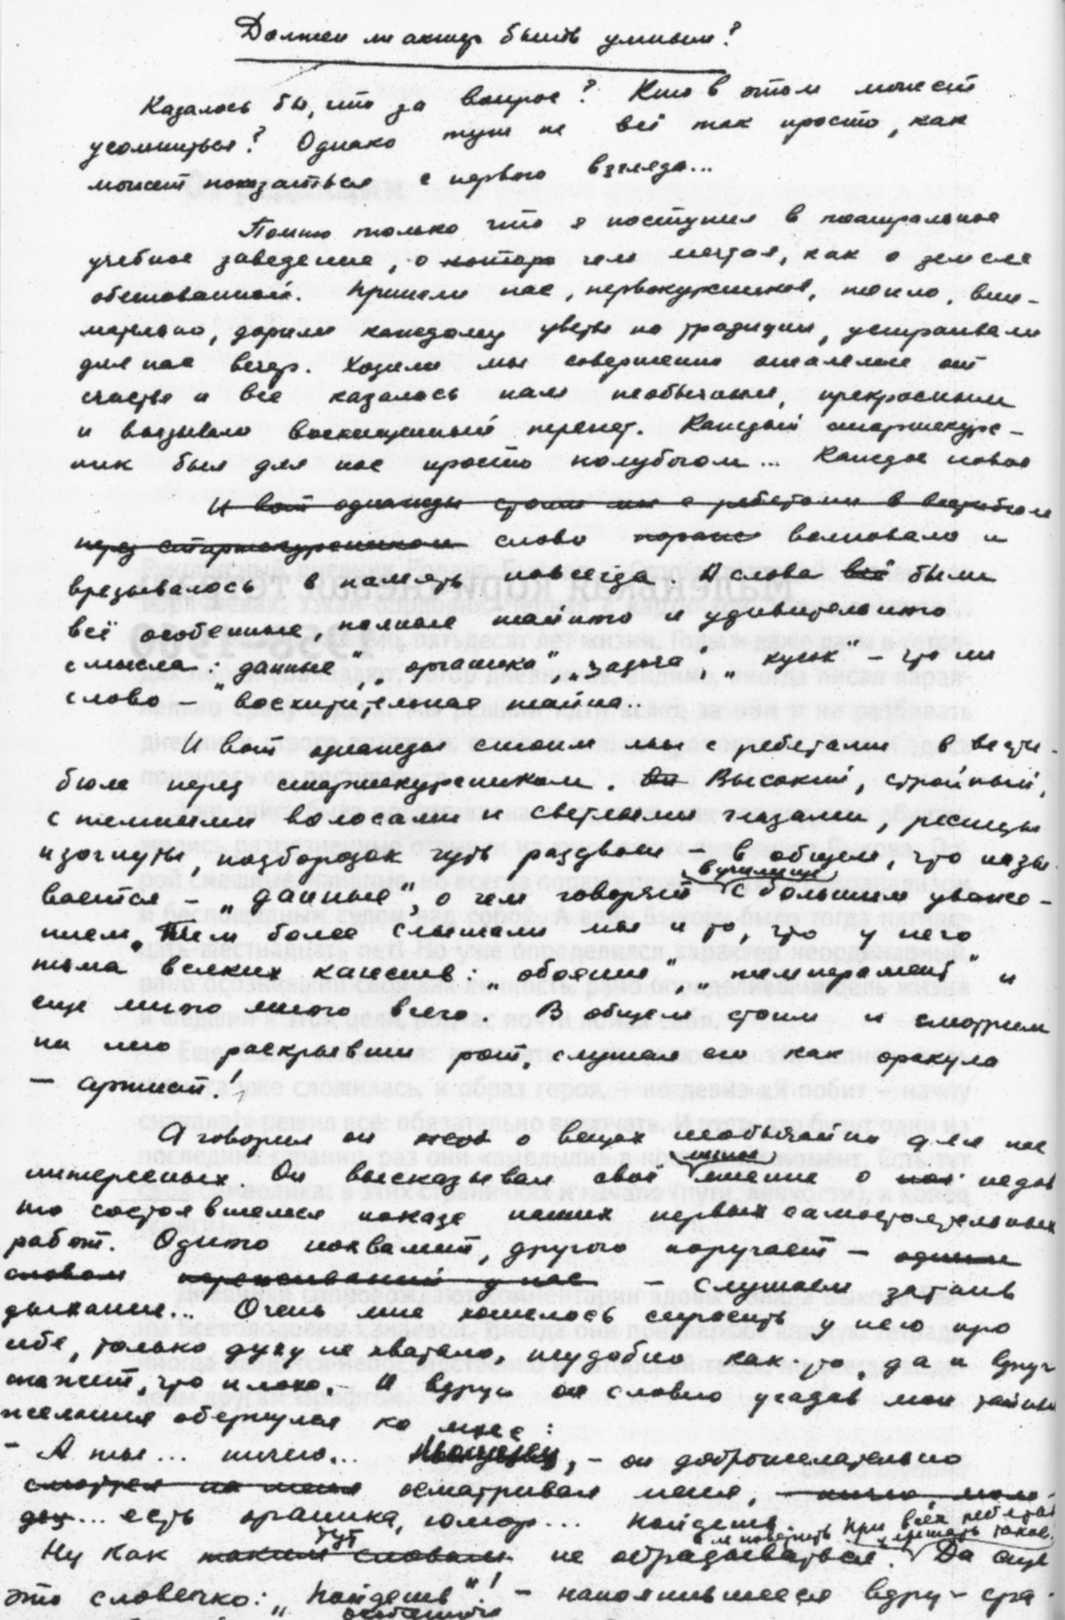 Должен ли актер быть умным?
Казалось бы, что за вопрос? Кто в этом может
усомниться? Однако тут не всё так просто, как
может показаться с первого взгляда...
Помню только что я поступил в театральное
учебное заведение, о котором мечтал, как о земле
обетованной. Приняли нас, первокурсников, тепло, вни-
мательно, дарили каждому цветы по традиции, устраивали
для нас вечер. Ходили мы совершенно ошалелые от
счастья и все казалось нам необычным, прекрасным
и вызывало восхищенный трепет. Каждый старшекурс-
ник был для нас просто полубогом... Каждое новое
И вот однажды стоим мы с ребятами в вестибюле
перед старшекурсником слово волновало и
врезывалось в память навсегда. А слова всё были
всё особенные, полные тайного и удивительного
смысла: „данные", „органика", „задача", „кусок" – что ни
слово – восхитительная тайна..
И вот однажды стоим мы с ребятами в вести-
бюле перед старшекурсником. Он Высокий, стройный,
с темными волосами и светлыми глазами, ресницы
изогнуты, подбородок чуть раздвоен – в общем, что назы-
вается – „данные", о чем говорят в училище с большим уваже-
нием. Тем более слышали мы и то, что у него
тьма всяких качеств: „обаяние", „темперамент" и
еще много много всего. В общем стоим и смотрим
на него раскрывши рот, слушая его как оракула
– артист!
А говорил он о вещах необычайно для нас
интересных. Он высказывал своё личное мнение о недав
но состоявшемся показе наших первых самостоятельных
работ. Одного похвалит, другого поругает – одним
словом – слушаем затаив
дыхание... Очень мне хотелось спросить у него про
себя, только духу не хватало, неудобно как-то, да и вдруг
скажет, что плохо. – И вдруг он словно угадав мои тайные
желания обернулся ко мне:
– А ты... ничего... – он доброжелательно
смотрел на меня осматривал меня, – ничего, моло-
дец... есть органика, юмор... Пойдешь.
Ну как тут не обрадоваться. Да ещё
при всех ребятах
услышать такое.
это словечко: „Пойдешь"! – наполнившееся вдруг